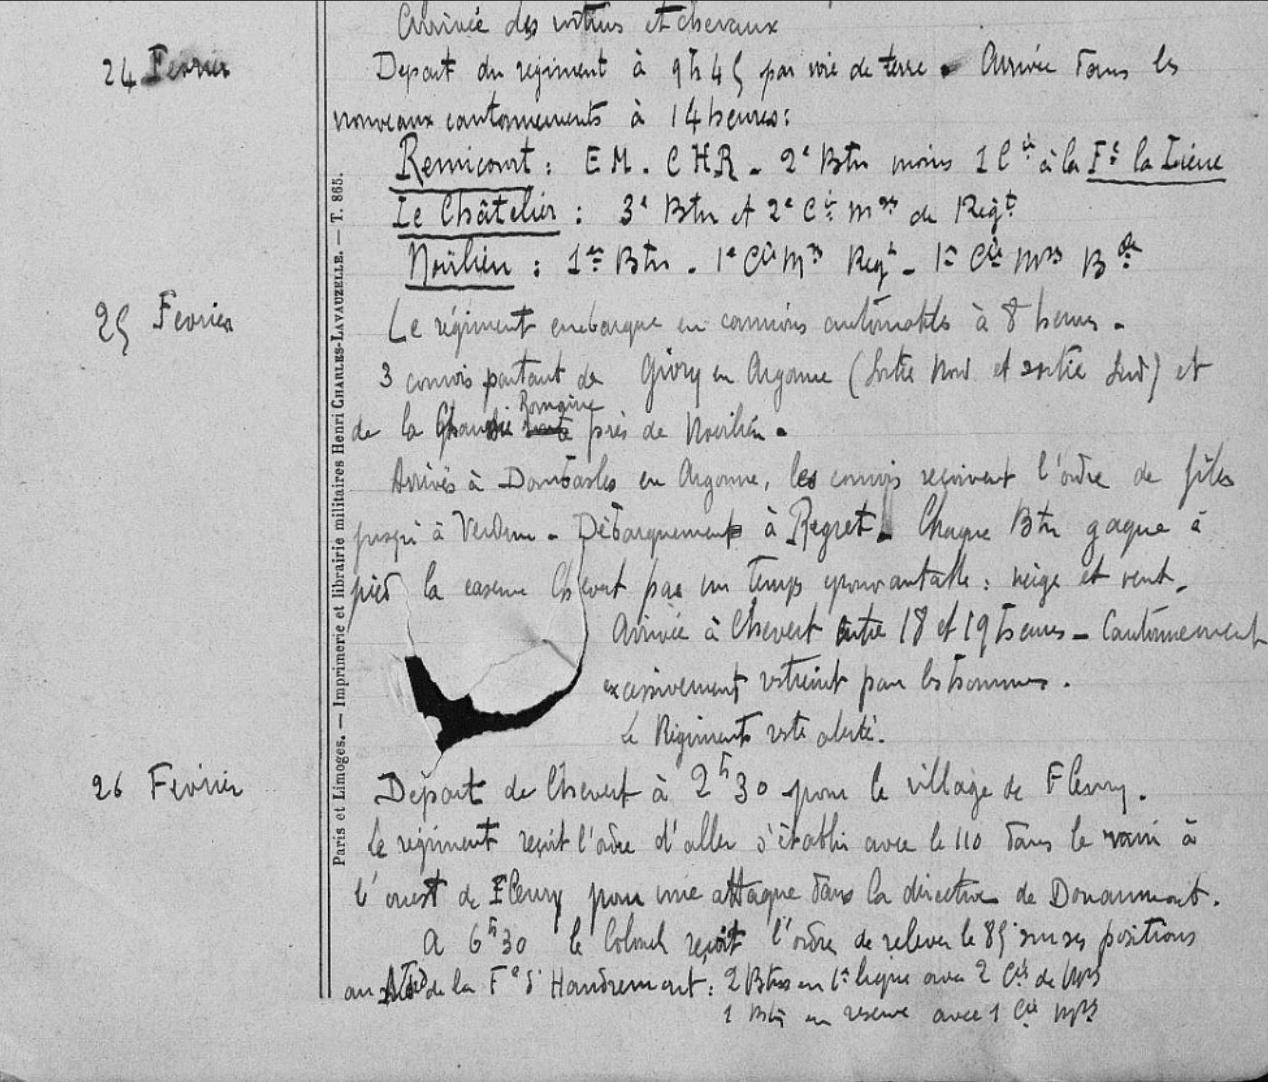 Arrivée des voitures et chevaux
24 Fevrier
Depart du regiment à 9h45 par voie de terre. Arrivée dans les
nouveaux cantonnements à 14 heures :
Remicourt : EM. CHR - 2e Btn moins 1 Cie à la Fe la Tiene
Le Châtelier : 3e Btn et 2e Cie Mses de Regt
Noirlieu : 1er Btn - 1e Cie Mses Regt - 1e Cie Mses Bde
25 Fevrier
Le régiment embarque en camions automobiles à 8 heures -
3 convois partant de Givry en Argonne (Sortie Nord et sortie Sud) et
de la Chaussée Romaine près de Noirlieu.
Arrivés à Dombasles en Argonne, les convois reçoivent l'ordre de filer
jusqu'à Verdun - Débarquement à Regret. Chaque Btn gagne à
pied la caserne Chevert par un temps épouvantable : neige et vent -
Arrivée à Chevert entre 18 et 19 heures - Cantonnement
excessivement restreint pour les hommes.
Le Régiment reste alerté.
26 Fevrier
Départ de Chevert à 2h30 pour le village de Fleury.
Le régiment reçoit l'ordre d'aller s'établir avec le 110 dans le ravin à
l'ouest de Fleury pour une attaque dans la direction de Douaumont.
A 6h30 le Colonel reçoit l'ordre de relever le 85e sur ses positions
au Nord de la Fe d'Haudremont : 2 Btns en 1e ligne avec 2 Cies de Mses
1 Btn en reserve avec 1 Cie Mses
Paris et Limoges. — Imprimerie et librairie militaires Henri CHARLES-LAVAUZELLE. — T. 865.